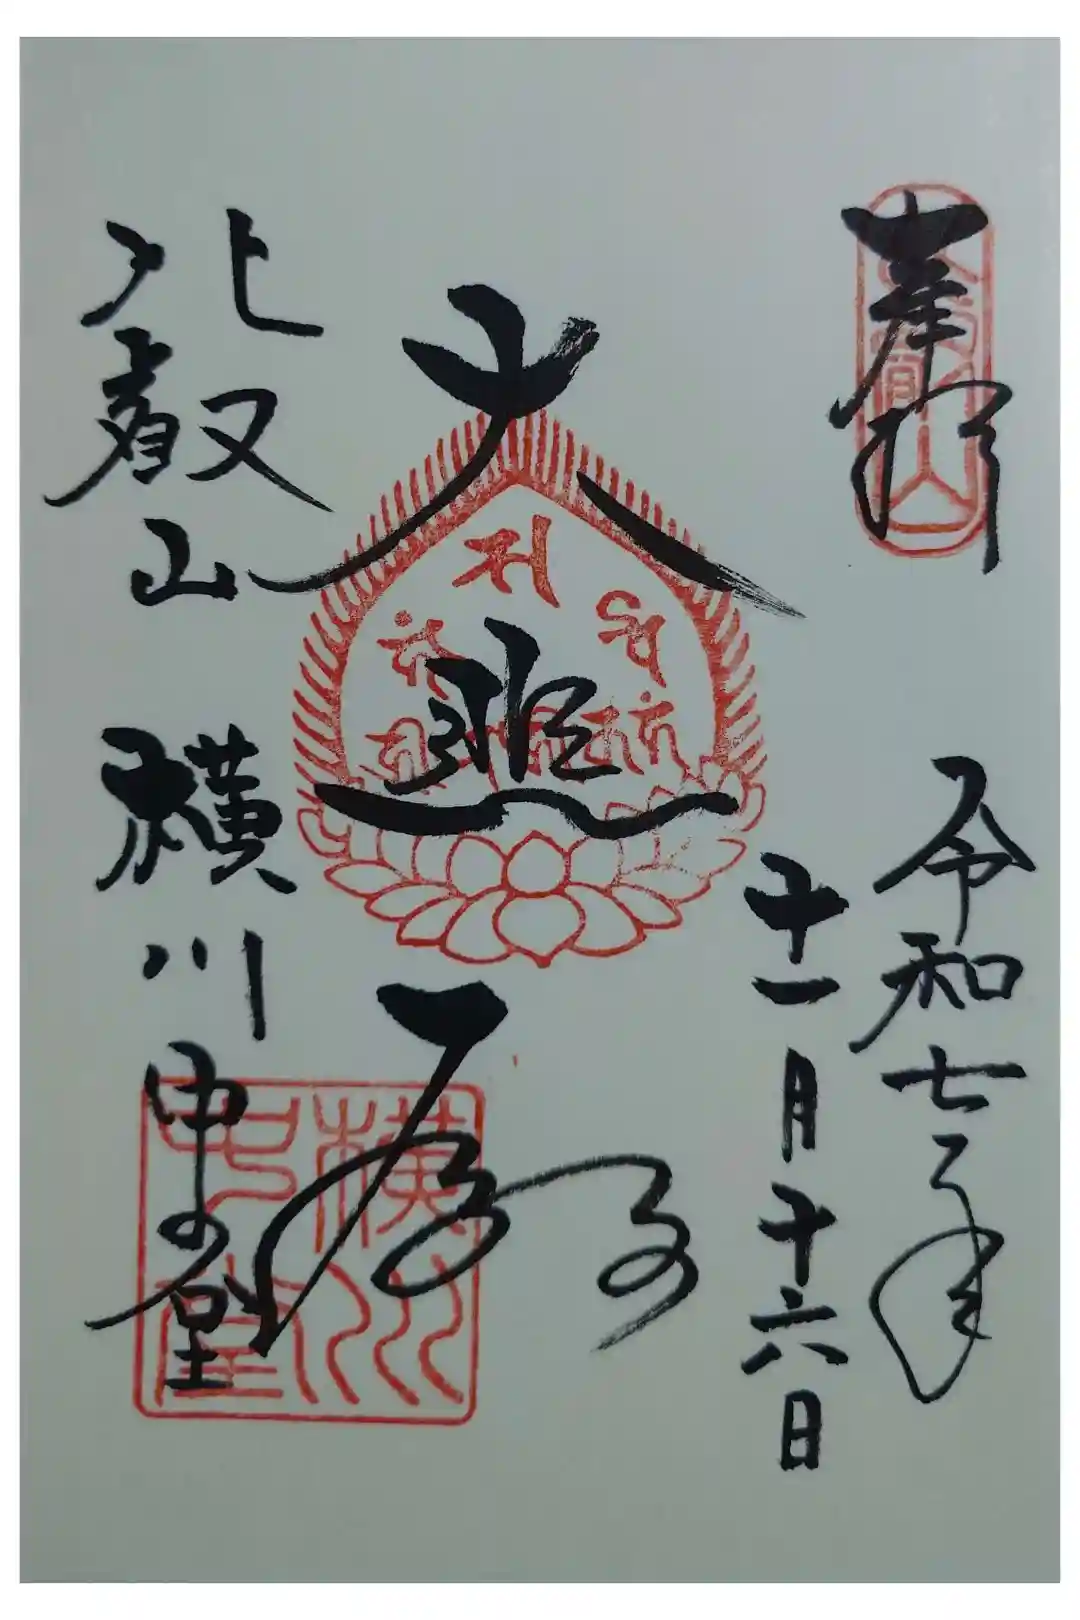 奉拝
令和七年
十一月十六日
大悲殿
比叡山 横川中堂
比叡山
横川
中堂